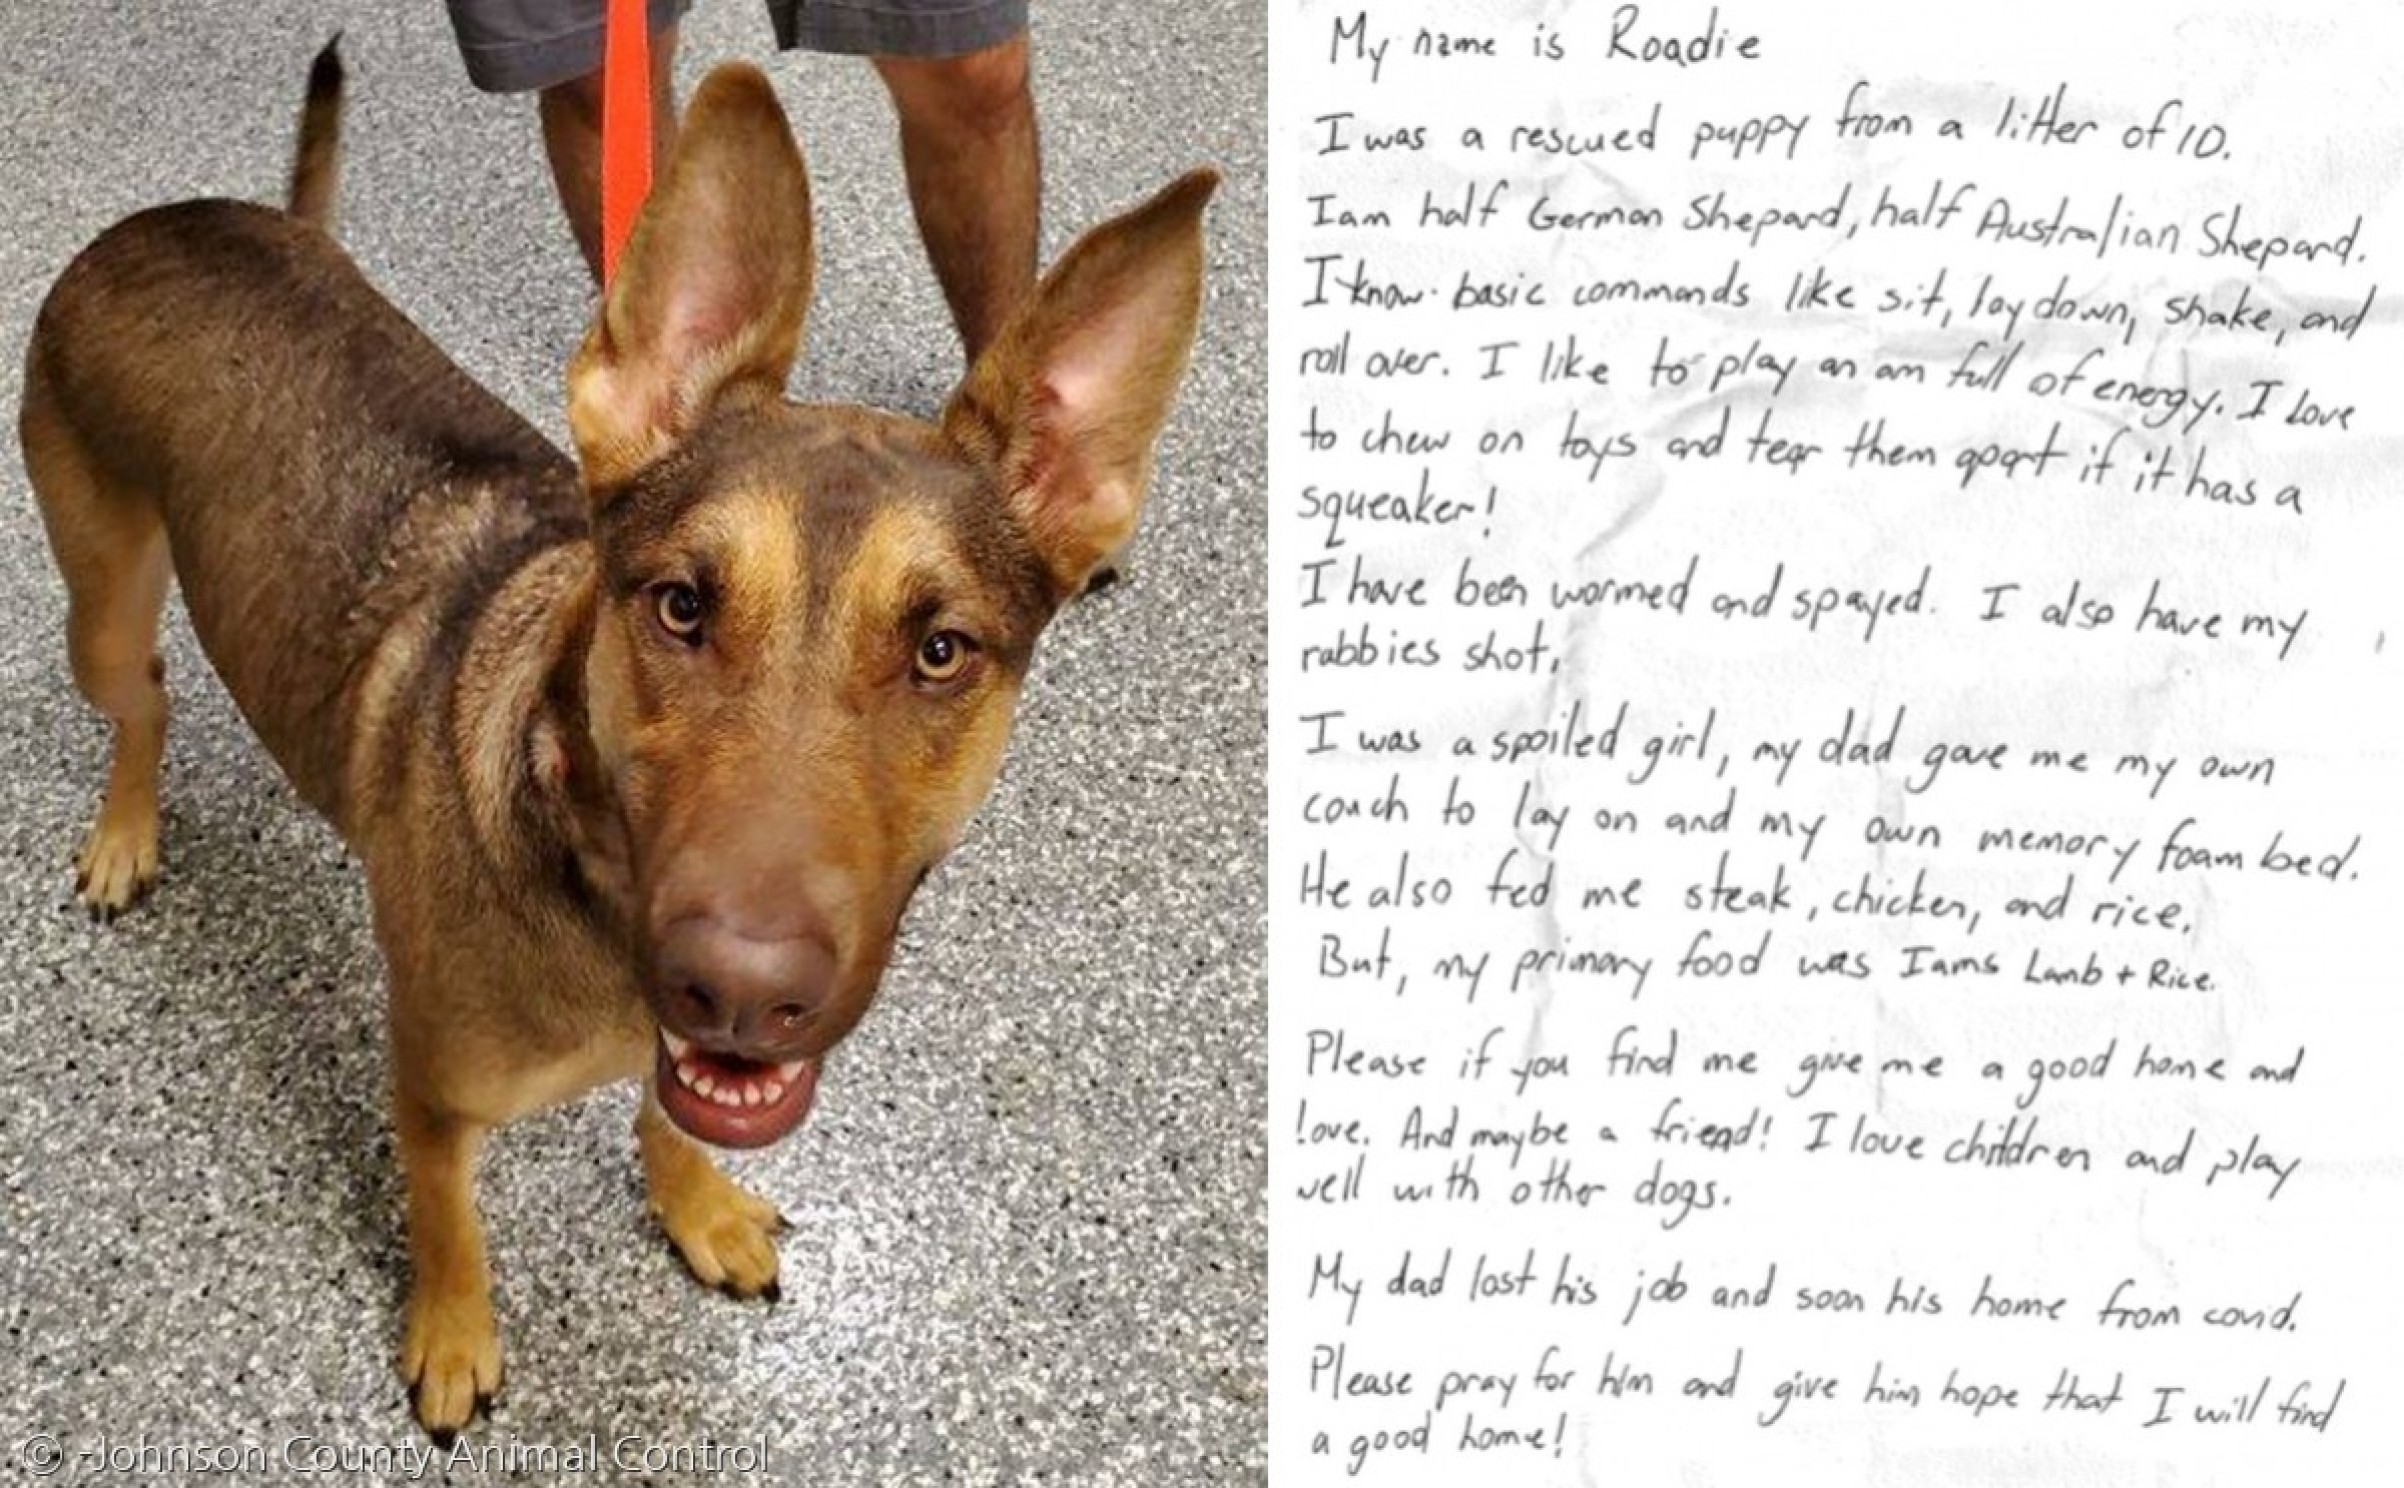 My name is Roadie
I was a rescued puppy from a litter of 10.
I am half German Shepard, half Australian Shepard.
I know basic commands like sit, lay down, shake, and
roll over. I like to play an am full of energy. I love
to chew on toys and tear them apart if it has a
squeaker!
I have been wormed and spayed. I also have my
rabbies shot.
I was a spoiled girl, my dad gave me my own
couch to lay on and my own memory foam bed.
He also fed me steak, chicken, and rice.
But, my primary food was Iams Lamb + Rice.
Please if you find me give me a good home and
love. And maybe a friend! I love children and play
well with other dogs.
My dad lost his job and soon his home from covid.
Please pray for him and give him hope that I will find
a good home!
© -Johnson County Animal Control